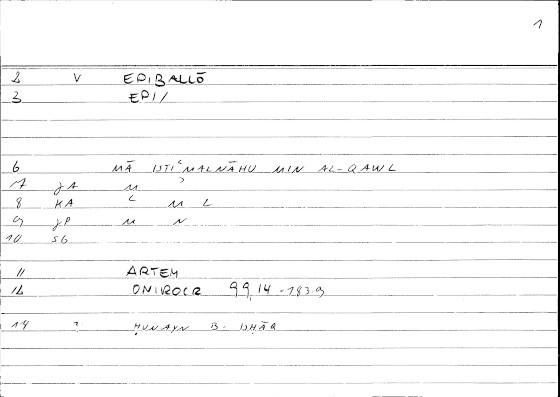 1
2 V EPIBALLŌ
3 EPI/
6 MĀ ISTIʿMALNĀHU MIN AL-QAWL
7 JA M ʾ
8 KA ʿ M L
9 JP M N
10 SG
11 ARTEM
12 ONIROCR 99,14 - 183.9
14 ? ḤUNAYN B. ISḤĀQ